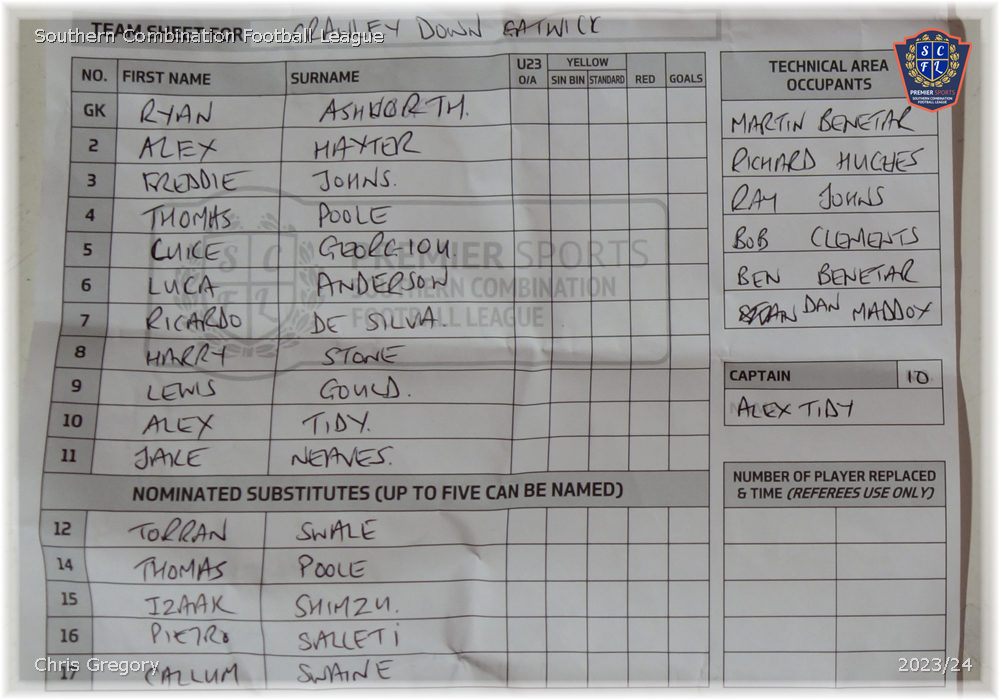 TEAM SHEET FOR CRAWLEY DOWN GATWICK
Southern Combination Football League
SCFL
PREMIER SPORTS
SOUTHERN COMBINATION
FOOTBALL LEAGUE
NO. FIRST NAME SURNAME U23 O/A YELLOW SIN BIN STANDARD RED GOALS
GK RYAN ASHWORTH.
2 ALEX HAYTER
3 FREDDIE JOHNS.
4 THOMAS POOLE
5 GEORGIOU.
6 LUCA ANDERSON
7 RICARDO DE SILVA.
8 HARRY STONE
9 LEWIS GOULD.
10 ALEX TIDY.
11 JAKE NEAVES.
SCFL
PREMIER SPORTS
SOUTHERN COMBINATION
FOOTBALL LEAGUE
NOMINATED SUBSTITUTES (UP TO FIVE CAN BE NAMED)
12 TORRAN SWALE
14 THOMAS POOLE
15 IZAAK SHIMZU.
16 PIETRO SALLETI
17 CALLUM SWAINE
TECHNICAL AREA
OCCUPANTS
MARTIN BENETAR
RICHARD HUGHES
RAY JOHNS
BOB CLEMENTS
BEN BENETAR
DAN MADDOX
CAPTAIN 10
ALEX TIDY
NUMBER OF PLAYER REPLACED
& TIME (REFEREES USE ONLY)
Chris Gregory
2023/24